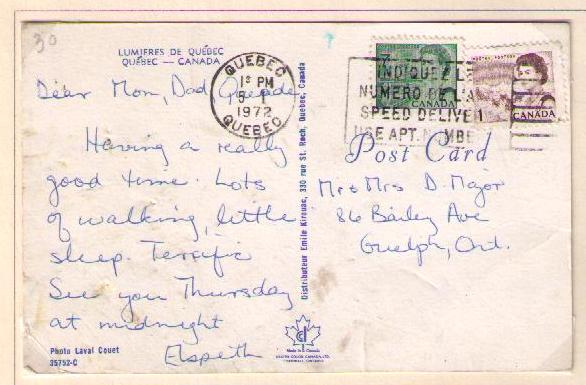 30
LUMIERES DE QUÉBEC
QUÉBEC — CANADA
Dear Mom, Dad
Having a really
good time. Lots
of walking, little
sleep. Terrific
See you Thursday
at midnight
Elspeth
Photo Laval Couet
35752-C
QUEBEC
PM
5 · I
1972
QUEBEC
INDIQUEZ LE
NUMERO DE
SPEED DELIVER
USE APT.
7
CANADA
CANADA
Post Card
Mr & Mrs D. Major
86 Bailey Ave
Guelph, Ont.
Distributeur Emile Kirouac, 330 rue St. Roch, Quebec, Canada
Made in Canada